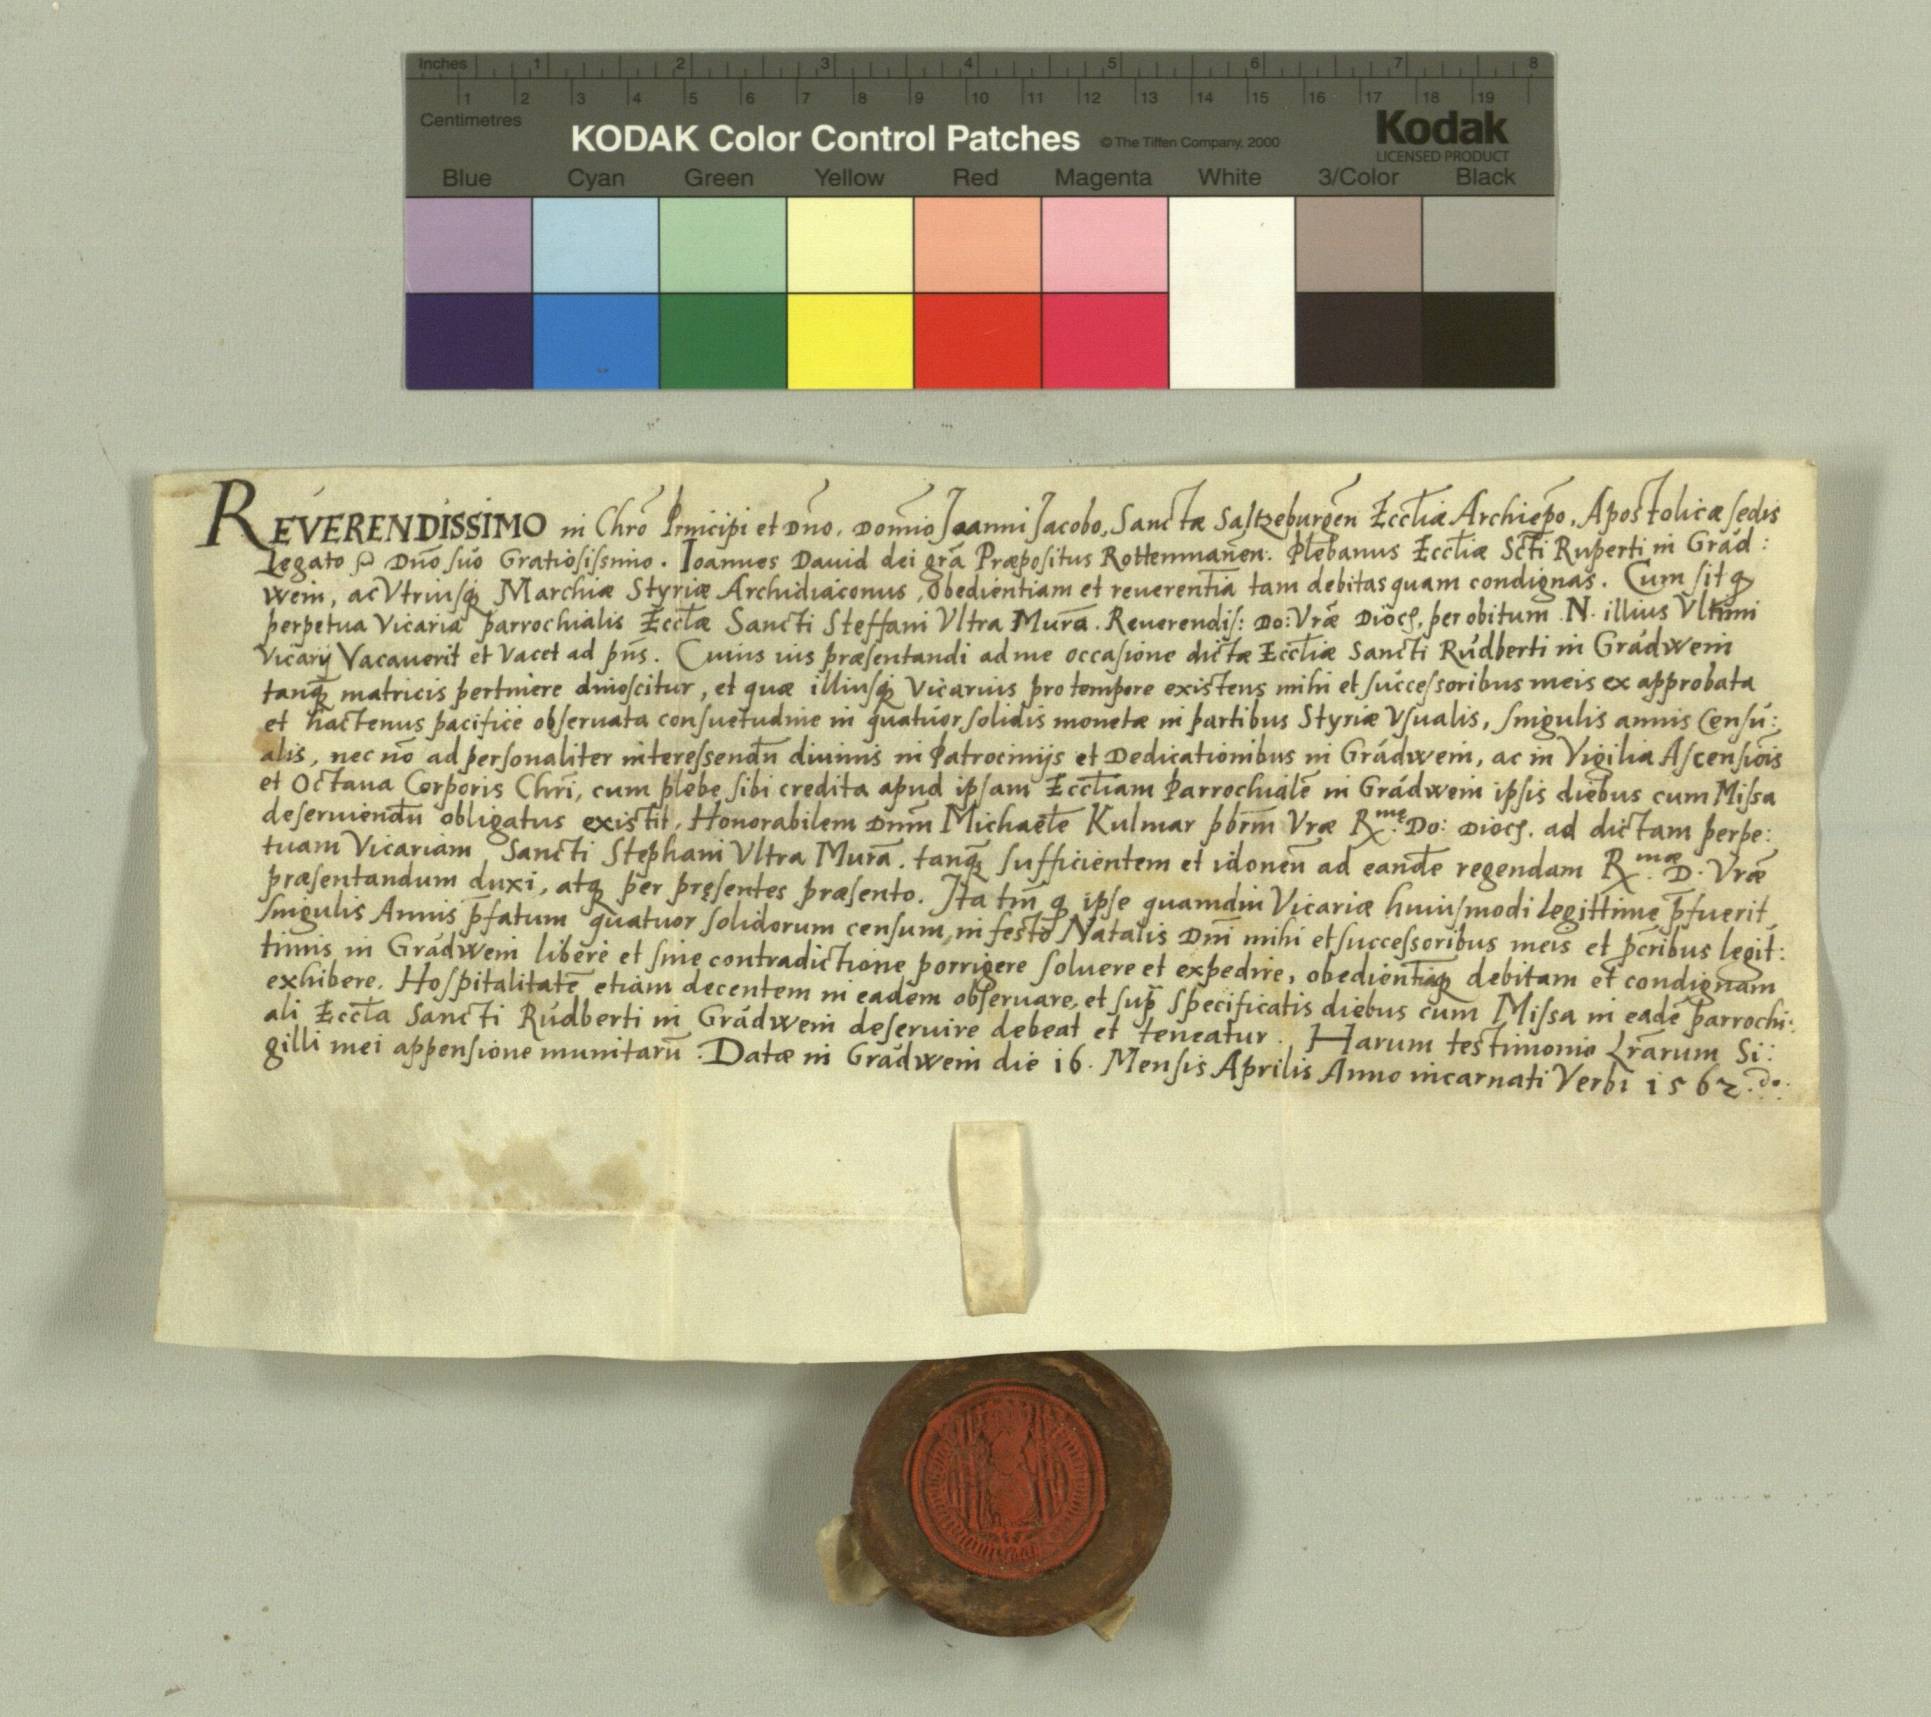 Inches 1 2 3 4 5 6 7 8
1 2 3 4 5 6 7 8 9 10 11 12 13 14 15 16 17 18 19
Centimetres
KODAK Color Control Patches © The Tiffen Company, 2000 Kodak
LICENSED PRODUCT
Blue Cyan Green Yellow Red Magenta White 3/Color Black
REVERENDISSIMO in Chrō Principi et Dño. Domīo Joanni Jacobo, Sanctæ Saltzeburgeñ Eccl̄iæ Archiep̄o, Apostolicæ sedis
Legato Dño suo Gratiosissimo. Ioannes Dauid dei grā Præpositus Rottenmaneñ. Plebanus Eccl̄iæ Scti Ruperti in Grád:
wein, ac Vtriusq̨ Marchiæ Styriæ Archidiaconus, Obedientiam et reuerentiā tam debitas quam condignas. Cum sitq̨
perpetua Vicaria parrochialis Eccl̄æ Sancti Steffani Vltra Murā. Reuerendis: Do: Vræ Dioc̄. per obitum N. illius Vltimi
Vicarij Vacauerit et Vacet ad p̄ns. Cuius ius præsentandi ad me occasione dictæ Eccl̄iæ Sancti Rúdberti in Grádwein
tanq̨ matricis pertinere dinoscitur, et quæ illiusq̨ Vicarius pro tempore existens mihi et successoribus meis ex approbata
et hactenus pacifice obseruata consuetudine in quatuor solidis monetæ in partibus Styriæ Vsualis, singulis annis Censu:
alis, nec nō ad personaliter interessendū diuinis in Patrocinijs et Dedicationibus in Grádwein, ac in Vigilia Ascensiōis
et Octaua Corporis Chri̅, cum plebe sibi credita apud ipsam Eccl̄iam Parrochialē in Grádwein ipsis diebus cum Missa
deseruiendū obligatus existit, Honorabilem Dnm̄ Michaelē Kulmar p̄br̄m Vræ R.me Do: Dioc̄. ad dictam perpe:
tuam Vicariam Sancti Stephani Vltra Murā. tanq̨ sufficientem et idoneū ad eandē regendam R.mæ D. Vræ
præsentandum duxi, atq̨ per pręsentes præsento. Ita tm̄ q̨ ipse quamdiu Vicariæ huiusmodi legittime p̄fuerit
singulis Annis p̄fatum quatuor solidorum censum, in festo Natalis Dn̄i mihi et successoribus meis et p̄cribus legit:
timis in Grádwein libere et sine contradictione porrigere soluere et expedire, obedientiāq̨ debitam et condignam
exhibere. Hospitalitatē etiam decentem in eadem obseruare, et sup̄ specificatis diebus cum Missa in eadē parrochi:
ali Eccl̄a Sancti Rúdberti in Grádwein deseruire debeat et teneatur. Harum testimonio Lr̄arum Si:
gilli mei appensione munitarū: Datæ in Grádwein die 16. Mensis Aprilis Anno incarnati Verbi 1562.do.